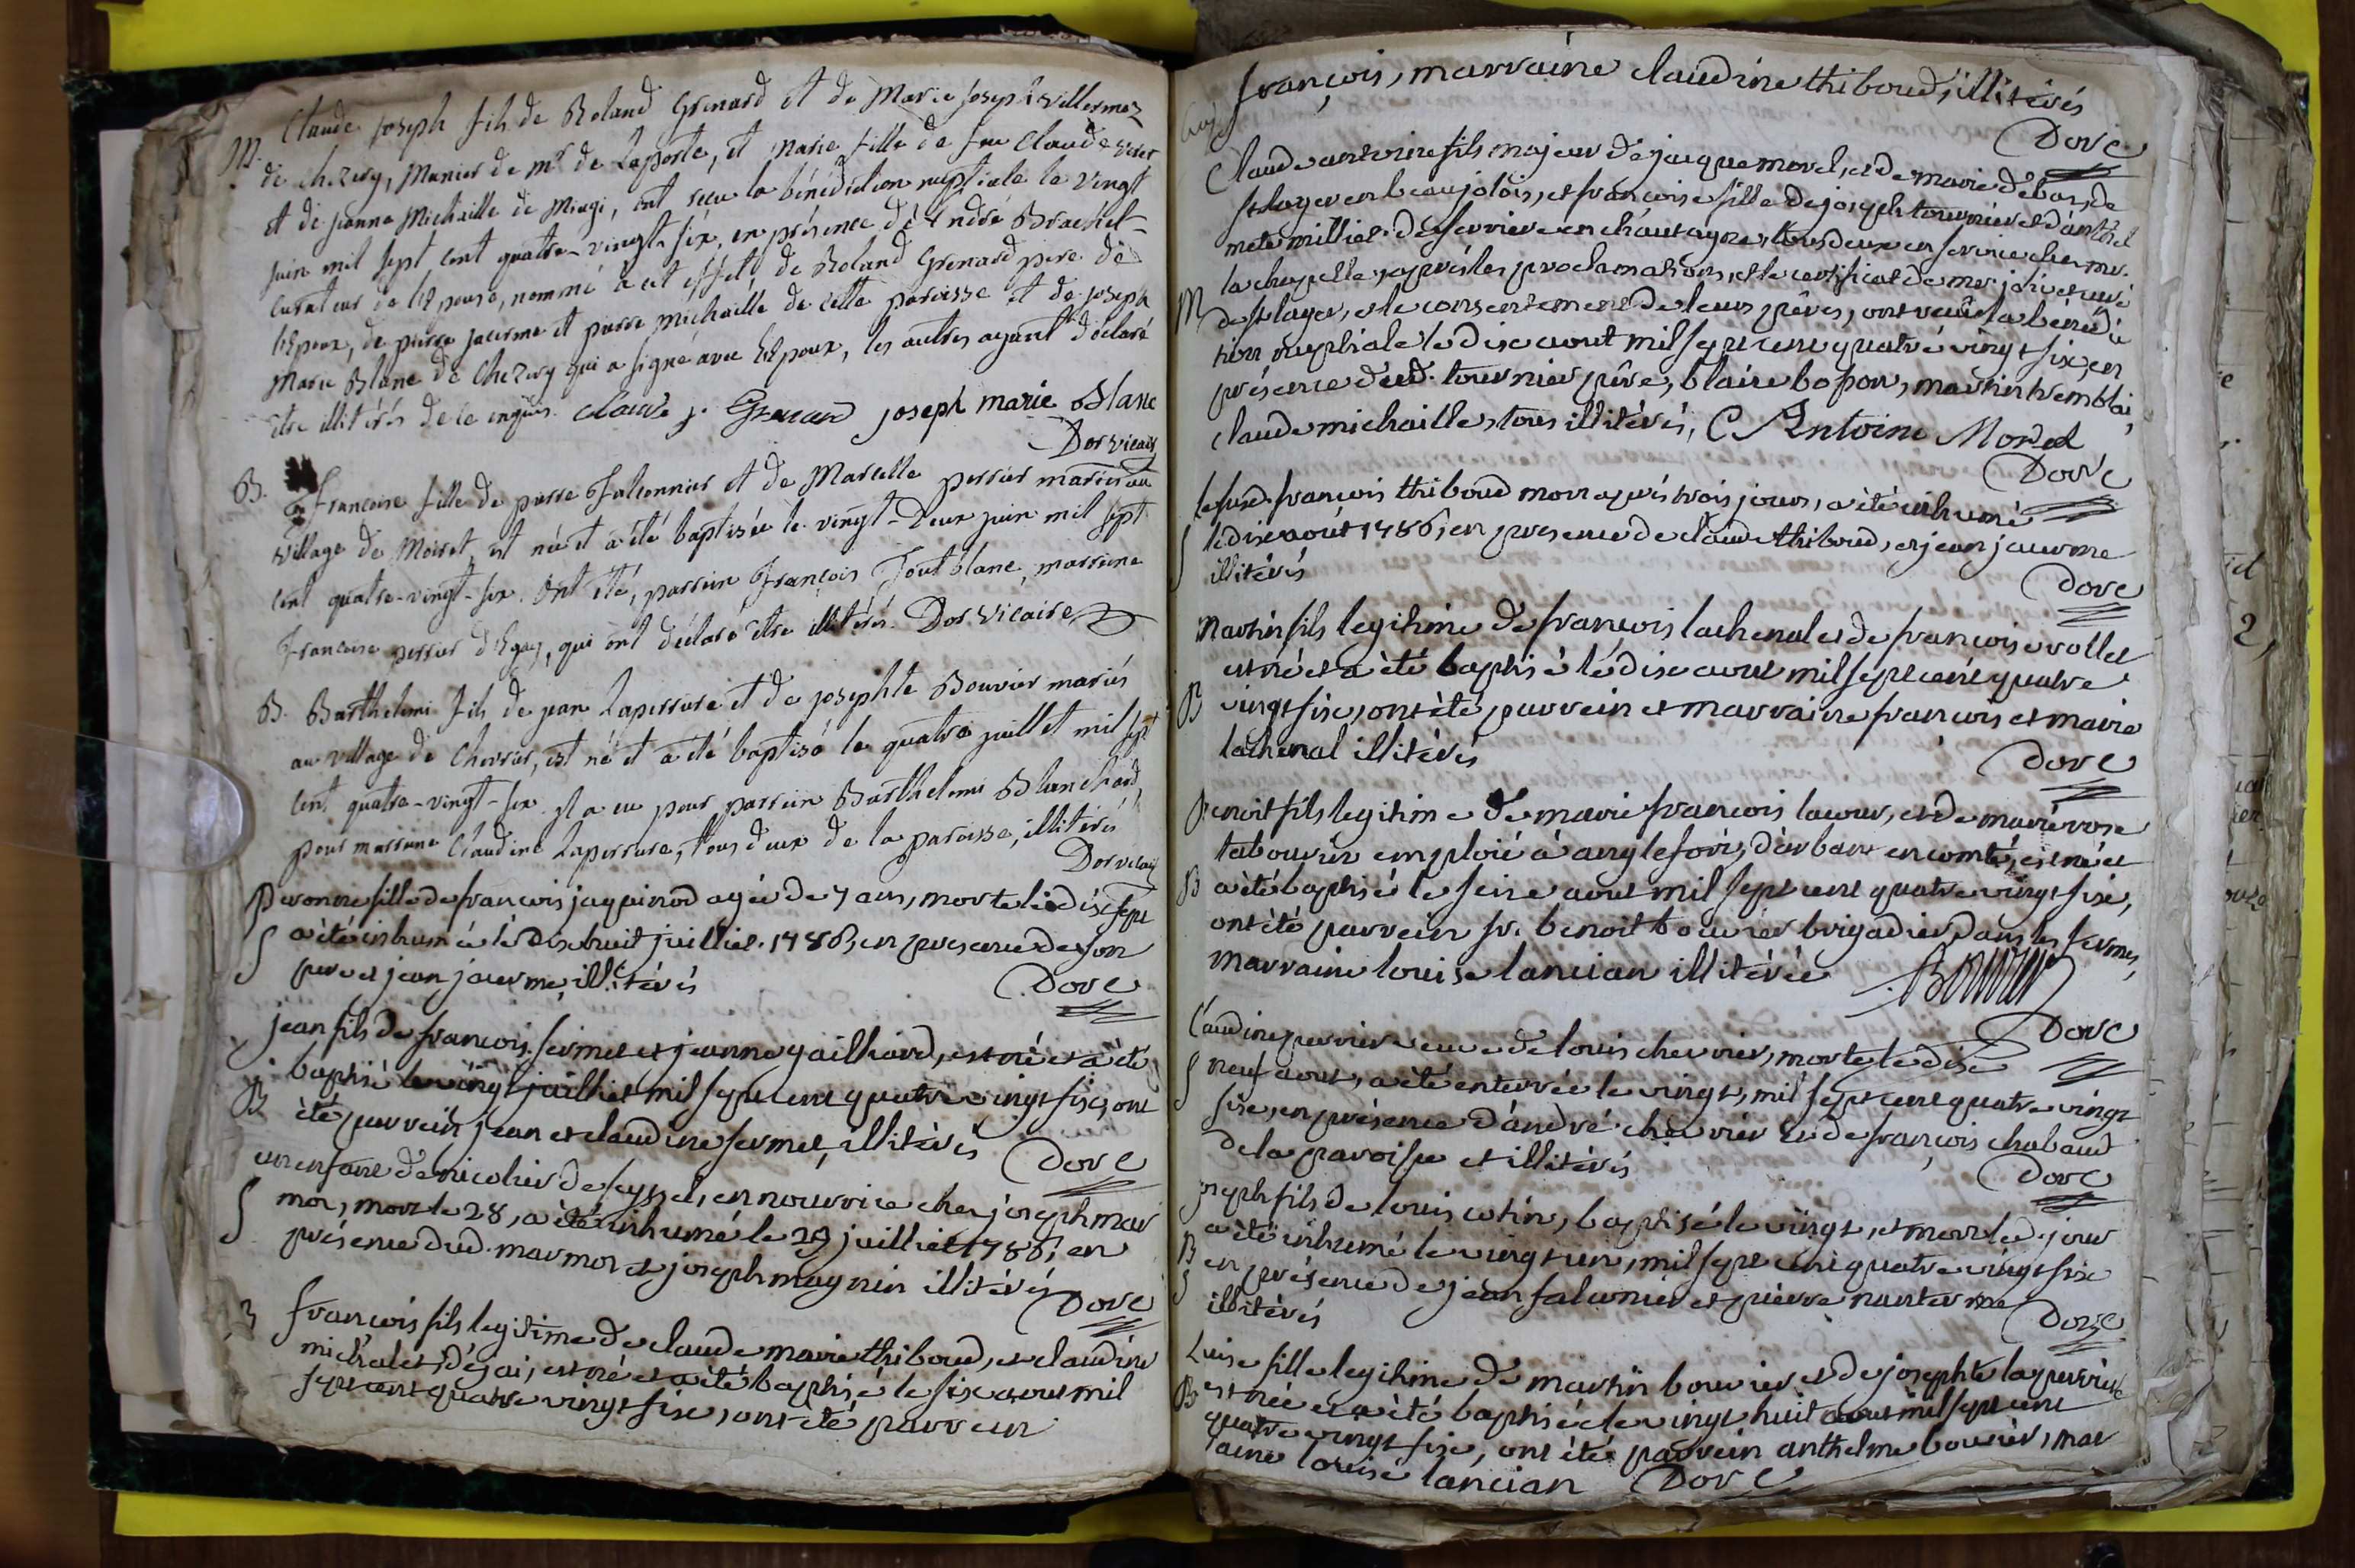 M. Claude Joseph fils de Roland Grenard et de Marie Joseph Villermoz
de Chezery, Munier de mr de Laporte, et Marie fille de feu Claude
et de jeanne Michaille de Mingi, ont reçu la bénédiction nuptiale le vingt
juin mil sept cent quatre-vingt-six, en présence de André Brachet
curateur de l'Epouse, nommé à cet effet, de Roland Grenard pere de
l'Epoux, de pierre jacerme et pierre Michaille de cette paroisse et de joseph
Marie Blanc de Chezery qui a signé avec l'Epoux, les autres ayant déclaré
etre illiterés de ce enquis. Claude j. Grenard joseph marie Blanc
Dor vicaire
B. francoise fille de pierre Falconnier et de Marcelle perrier mariés au
village de Moiret, est née et a été baptisée le vingt-Deux juin mil sept
cent quatre-vingt-six. Ont été, parrein François Toutblanc, marreine
Francoise perrier d'Egay, qui ont déclaré être illiterés. Dor Vicaire
B. Barthelemi fils de jean Laperrure et de josephte Bouvier mariés
au village de Cherrier, est né et a été baptisé le quatre juillet mil sept
cent quatre-vingt-six. il a eu pour parrein Barthelemi Blanchard,
pour marreine Claudine Laperrure, tous deux de la paroisse, illiterés
Dor vicaire
Peronne fille de françois jaquinod agée de 7 ans, morte le dixsept
S a été inhumée le dixhuit juilliet 1786, en presence de son
pere et jean jacerme, illitérés
Dor c
jean fils de francois fermet et jeanne gailliard, est né et a été
baptisé le vingt juilliet mil sept cent quatre vingt six, ont
B été parrein jean et claudine fermet, illitérés
Dor c
un enfant de nicolier de seyssel, en nourrice chez joseph mar
S mor, mort le 28, a été inhumé le 29 juilliet 1786, en
présence dud. marmor et joseph magnin illitérés
Dor c
B françois fils legitime de claude marie thiboud, et claudine
michalet d'égai, est né et a été baptisé le six aout mil
sept cent quatre vingt six, ont été parrein
françois, marraine claudine thiboud, illitérés
Dor c
Claude antoine fils majeur de jacque morel, et de marie debar, de
st lager en beaujolois, et françoise fille de joseph tournier et d'anthel
mete milliet de serriere en chautagne, tous deux en service chez mr.
la chapelle, après les proclamations, et le certificat de mr. curé
M de st lager, et le consentement de leurs pères, ont reçu la bénédic
tion nuptiale le dix aout mil sept cent quatre vingt six, en
présence dud. tournier père, blaise boson, martin tremblai,
claude michaille, tous illitérés, C Antoine Morel
Dor c
le susd. françois thiboud mort après trois jours, a été inhumé
S le dix août 1786, en presence de claude thiboud, et jean jacerme
illitérés
Dor c
Martin fils legitime de françois lachenal et de françoise rollet
est né et a été baptisé le dix aout mil sept cent quatre
B vingt six, ont été parrein et marraine françois et marie
lachenal illitérés
Dor c
Benoit fils legitime de marie françois lacour, et de marie rose
tabourin emploié à anglefort, d'arban en comté, est né et
B a été baptisé le seize aout mil sept cent quatre vingt six,
ont été parrein sr. benoit bouvier brigadier dans les fermes,
marraine louise lancian illitérée
Bouvier
Dor c
Claudine perrier veuve de louis chevrier, morte le dix
S neuf aout, a été enterrée le vingt, mil sept cent quatre vingt
six, en présence d'andré chevrier et de françois chabaud
de la paroisse et illitérés
Dor c
joseph fils de louis cotin, baptisé le vingt, et mort led. jour
B a été inhumé le vingt un, mil sept cent quatre vingt six
S en présence de jean falconier et pierre nanterme
illitérés
Dor c
Luise fille legitime de martin bouvier et de josephte laperrière
B est née et a été baptisée le vingt huit aout mil sept cent
quatre vingt six, ont été parrein anthelme bouvier, mar
raine louise lancian Dor c